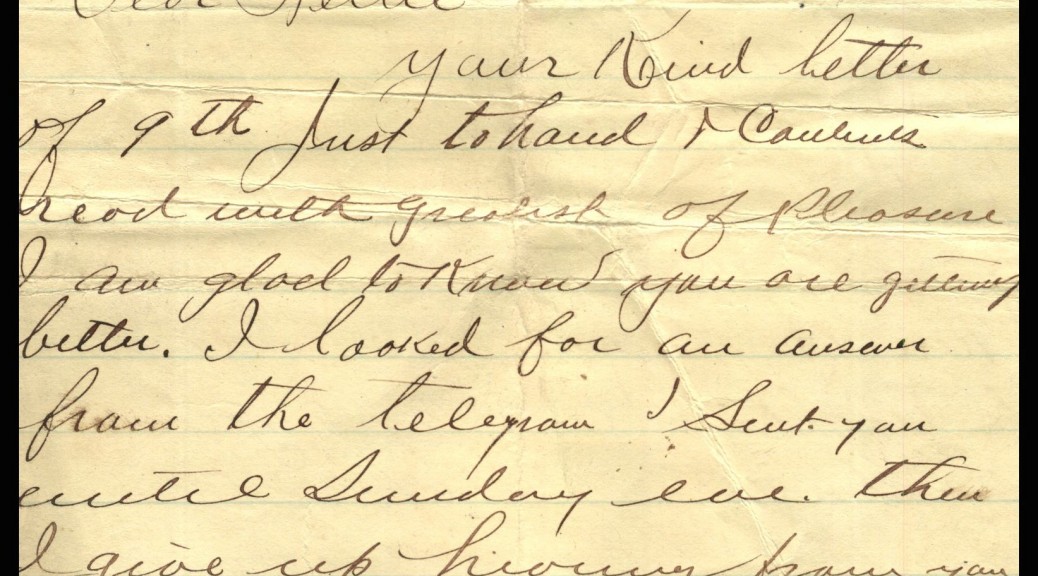 Dear Nellie
your Kind letter
of 9th Just to hand & Contents
read with greatest of Pleasure
I am glad to Know you are getting
better. I looked for an answer
from the telegram I Sent you
until Sunday eve. then
I give up hearing from you